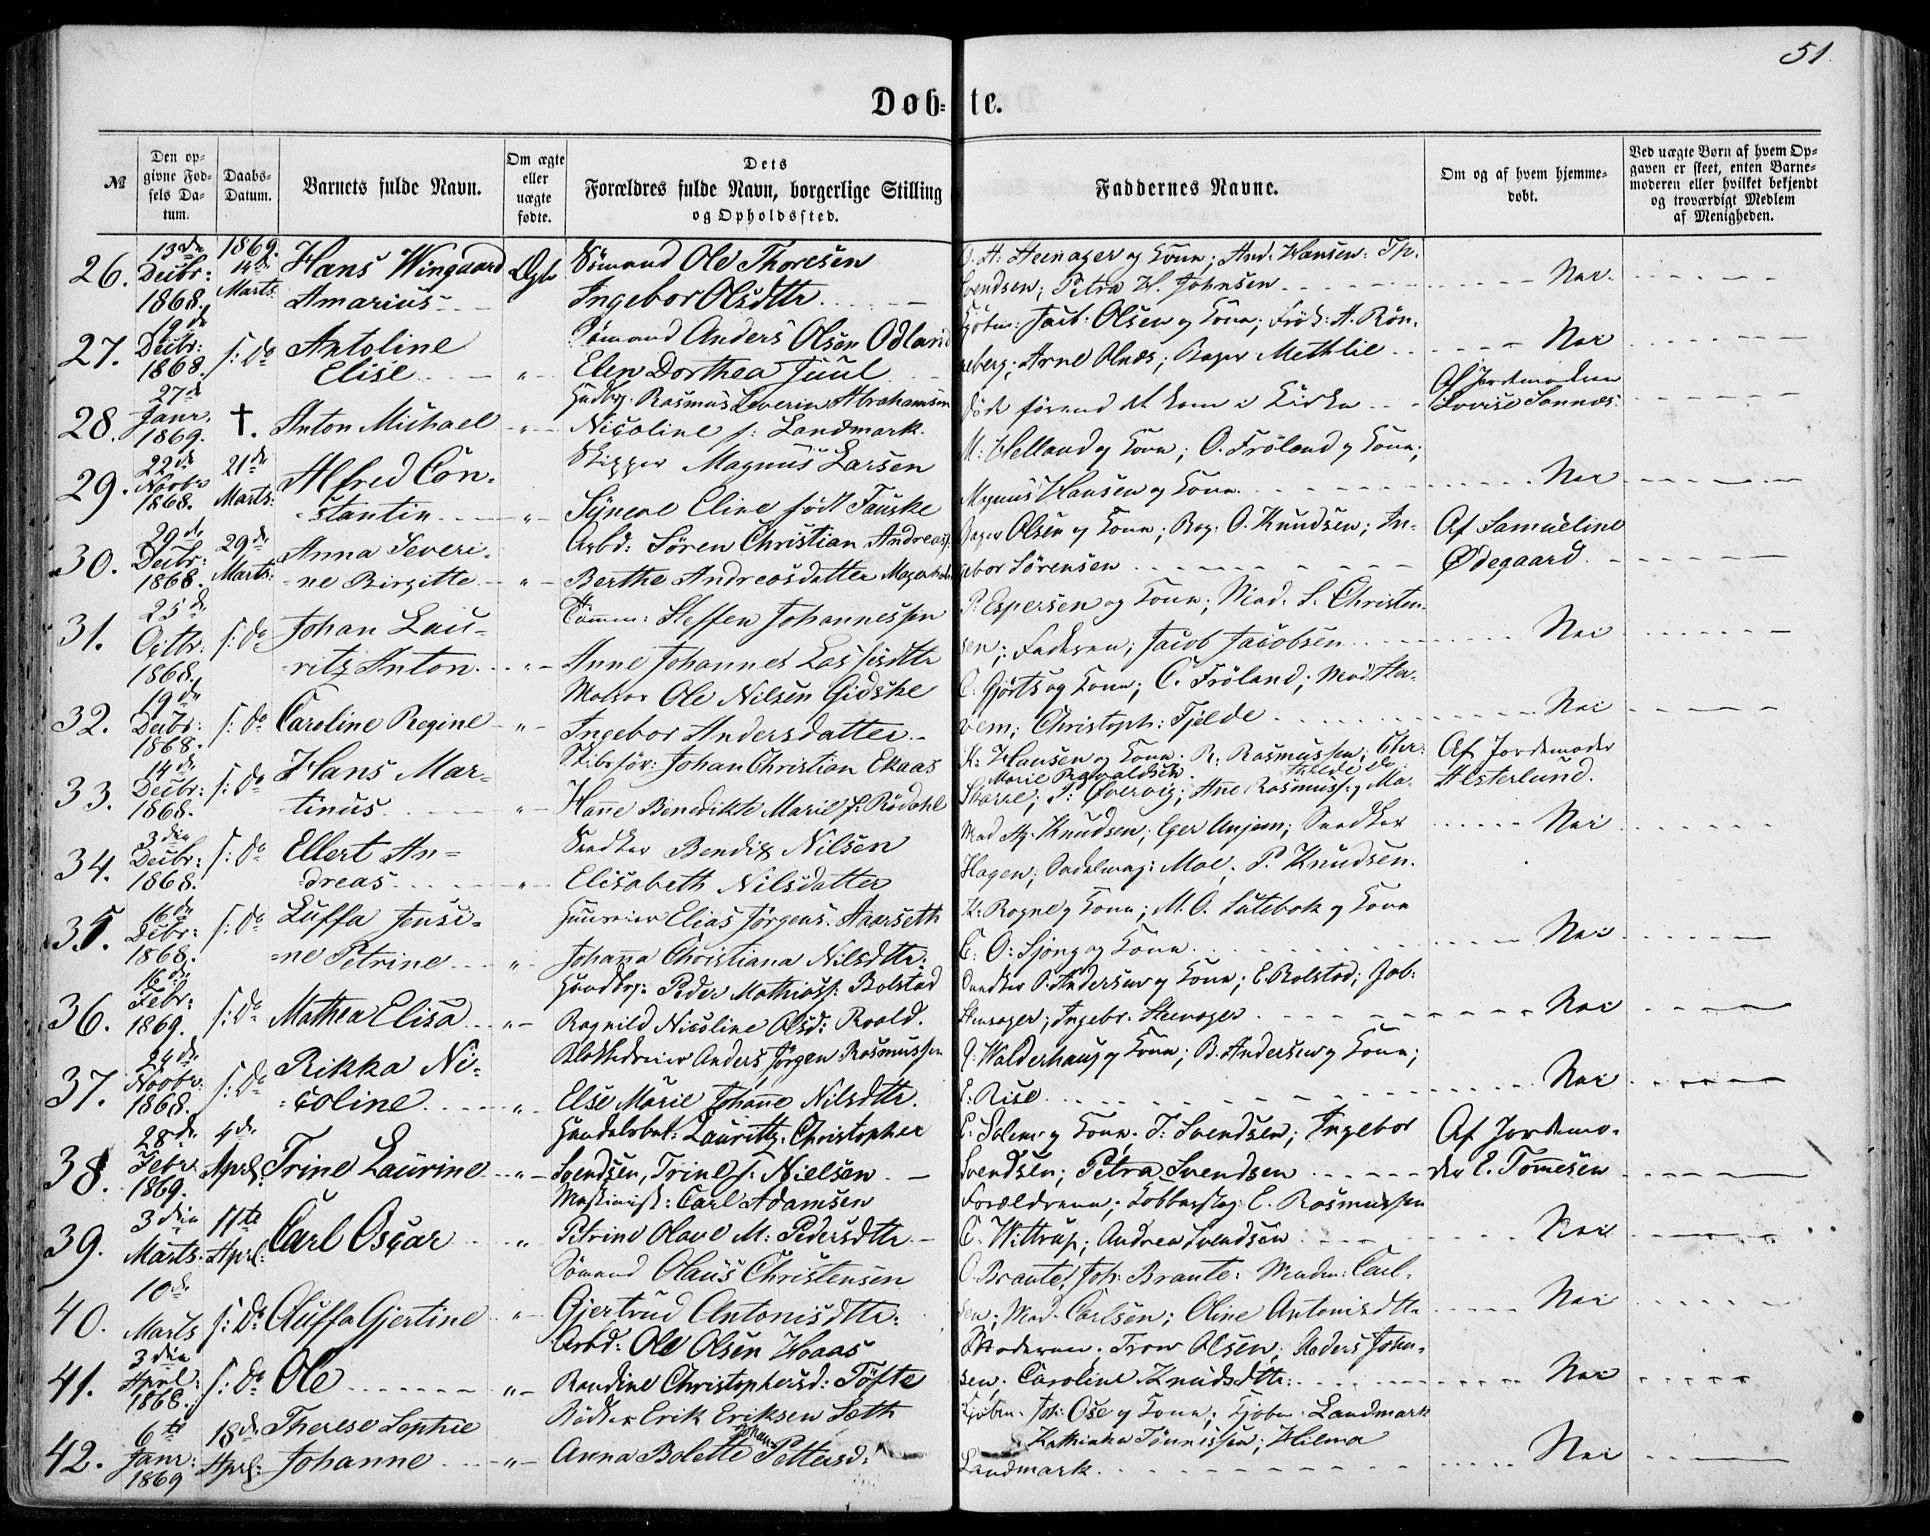 51.
Døb= te.
№
Den op=
givne Fød=
sels Da=
tum.
Daabs=
Datum.
Barnets fulde Navn.
Om ægte
eller
uægte
fødte.
Dets
Forældres fulde Navn, borgerlige Stilling
og Opholdssted.
Faddernes Navne.
Om og af hvem hjemme=
døbt.
Ved uægte Børn af hvem Op=
gaven er skeet, enten Barne=
moderen eller hvilket bekjendt
og troværdigt Medlem
af Menigheden.
26. 13de Decbr: 1868. 1869. 14de Marts.
Hans Wingaard Ægte Sömand Ole Thoresen
Amarius Ingebor Olsdtr.
O. A. Steenager og Kone; And. Hansen: Th.
Svendsen; Petra H. Johnsen Nei.
27. 19de Decbr: 1868. s: Do
Antoline Sömand Anders Olsen Odland
Elise " Elen Dorthea Juul
Kjöbm: Jacb: Olsen og Kone; Frök: A. Rön=
neberg; Arne Olnæs; Bager Methlie Nei
28. 27de Janr. 1869. †.
Anton Michael " Huusbrg. Rasmus Severin Abrahamsen
Nicoline f: Landmark.
Död förend det kom i Kirke
Af Jordemoderen
Lovise Sonnæs.
29. 22de Novbr 1868. 21de Marts.
Alfred Con= Skipper Magnus Larsen
=stantin " Synere Eline född Fauske
M: Helland og Kone; O. Fröland og Kone;
Magnus Hansen og Kone. Nei
30. 29de Decbr: 1868. 29de Marts:
Anna Severi= Arbd: Sören Christian Andreass:
=ne Birgitte " Berthe Andreasdatter
Bager Olsen og Kone; Bag: O. Knudsen; In=
gebor Sörensen
Af Samueline
Ødegaard.
31. 25de Octbr: 1868. s: Do
Johan Lau= Tömm: Steffen Johannessen
=ritz Anton " Anne Johannes Lassesdtr
P. Espersen og Kone; Mad. S. Christen=
sen; Faderen; Jacob Jacobsen Nei
32. 19de Decbr: 1868. s: Do
Caroline Regine " Matros Ole Nilsen Gidske
Ingebor Andersdatter.
C. Gjörts og Kone; C. Fröland; Mad. Ha=
vem; Christoph: Fjelde Nei
33. 14de Decbr: 1868. s: Do
Hans Mar= Skibsför: Johan Christian Ekaas
tinus " Hanne Benedikte Marie f: Rödahl
K: Hansen og Kone. R. Rasmussen; Chr:
Marie Rasvaldsen.
Skarre; P: Øvervig; Ane Rasmuss: Ma=
Af Jordemoder
Westerlund.
34. 3die Decbr: 1868. s: Do
Ellert An= Snedker Bendix Nilsen
=dreas " Elisabeth Nilsdatter
Mad Kj. Knudsen; Eger Anjem; Snedker
Hagen; Sadelmag: Moe; P. Knudsen. Nei
35. 16de Decbr: 1868. s: Do
Luffa Jensi= Huuseier Elias Jörgens. Aarseth
=ne Petrine " Johanna Christiana Nilsdtr.
K: Rogne og Kone; M. O. Sulebak og Kone
E. O: Sjong og Kone. Nei
36. 16de Febr: 1869. s: Do
Mathea Elisa " Huusbrg: Peder Mathiass. Rolstad
Ragnild Nicoline Olsd: Roald.
Snedker O. Andersen og Kone; E. Rolstad; Joh:
Steenager; Ingebr. Steenager Nei
37. 24de Novbr: 1868. s: Do
Rikka Ni= Blokkedreier Anders Jörgen Rasmussen
=coline " Else Marie Johanne Nilsdtr.
G: Walderhaug og Kone; B. Andersen og Kone;
E. Rise. Nei
38. 28de Febr. 1869. 4de April.
Trine Laurine " Handelsbet: Lauritz Christopher
Svendsen, Trine f: Nielsen
E: Solem og Kone. T: Svendsen; Ingebor
Svendsen; Petra Svendsen
Af Jordemo=
der E. Tommesen
39. 3die Marts. 11te April:
Carl Oscar " Maskinist: Carl Adamsen
Petrine Olave M: Pedersdtr.
Forældrene; Kobberslag: E. Rasmussen
C. Wittrup; Andrea Svendsen Nei
40. 10de Marts s: Do
Auffa Gjertine " Sömand Olaus Christensen
Gjertrud Antonisdtr:
O. Braute; Joh. Braute: Madm: Carl=
sen; Mad. Carlsen; Oline Antonisdtr Nei
41. 3die April: 1868. s: Do
Ole " Arbd: Ole Olsen Haas
Randine Christophersd: Töfte
Moderen. Tron Olsen; Anders John=
sen. Caroline Knudsdtr. Nei
42. 6te Janr: 1869 18de April:
Therese Sophie Bödker Erik Eriksen Sæth
Johanne " Anna Bolette Johan Pettersd:
Kjöbm. Joh: Ose og Kone; Kjöbm. Landmark
Kathinka Tönnessen; Hilma
Landmark. Nei